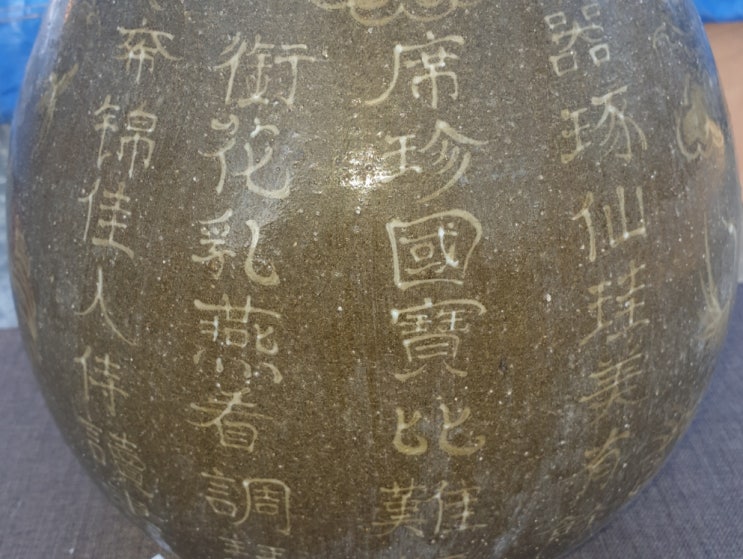 器琢仙珪美有
席珍國寶比難
銜花乳燕看調
錦佳人侍讀